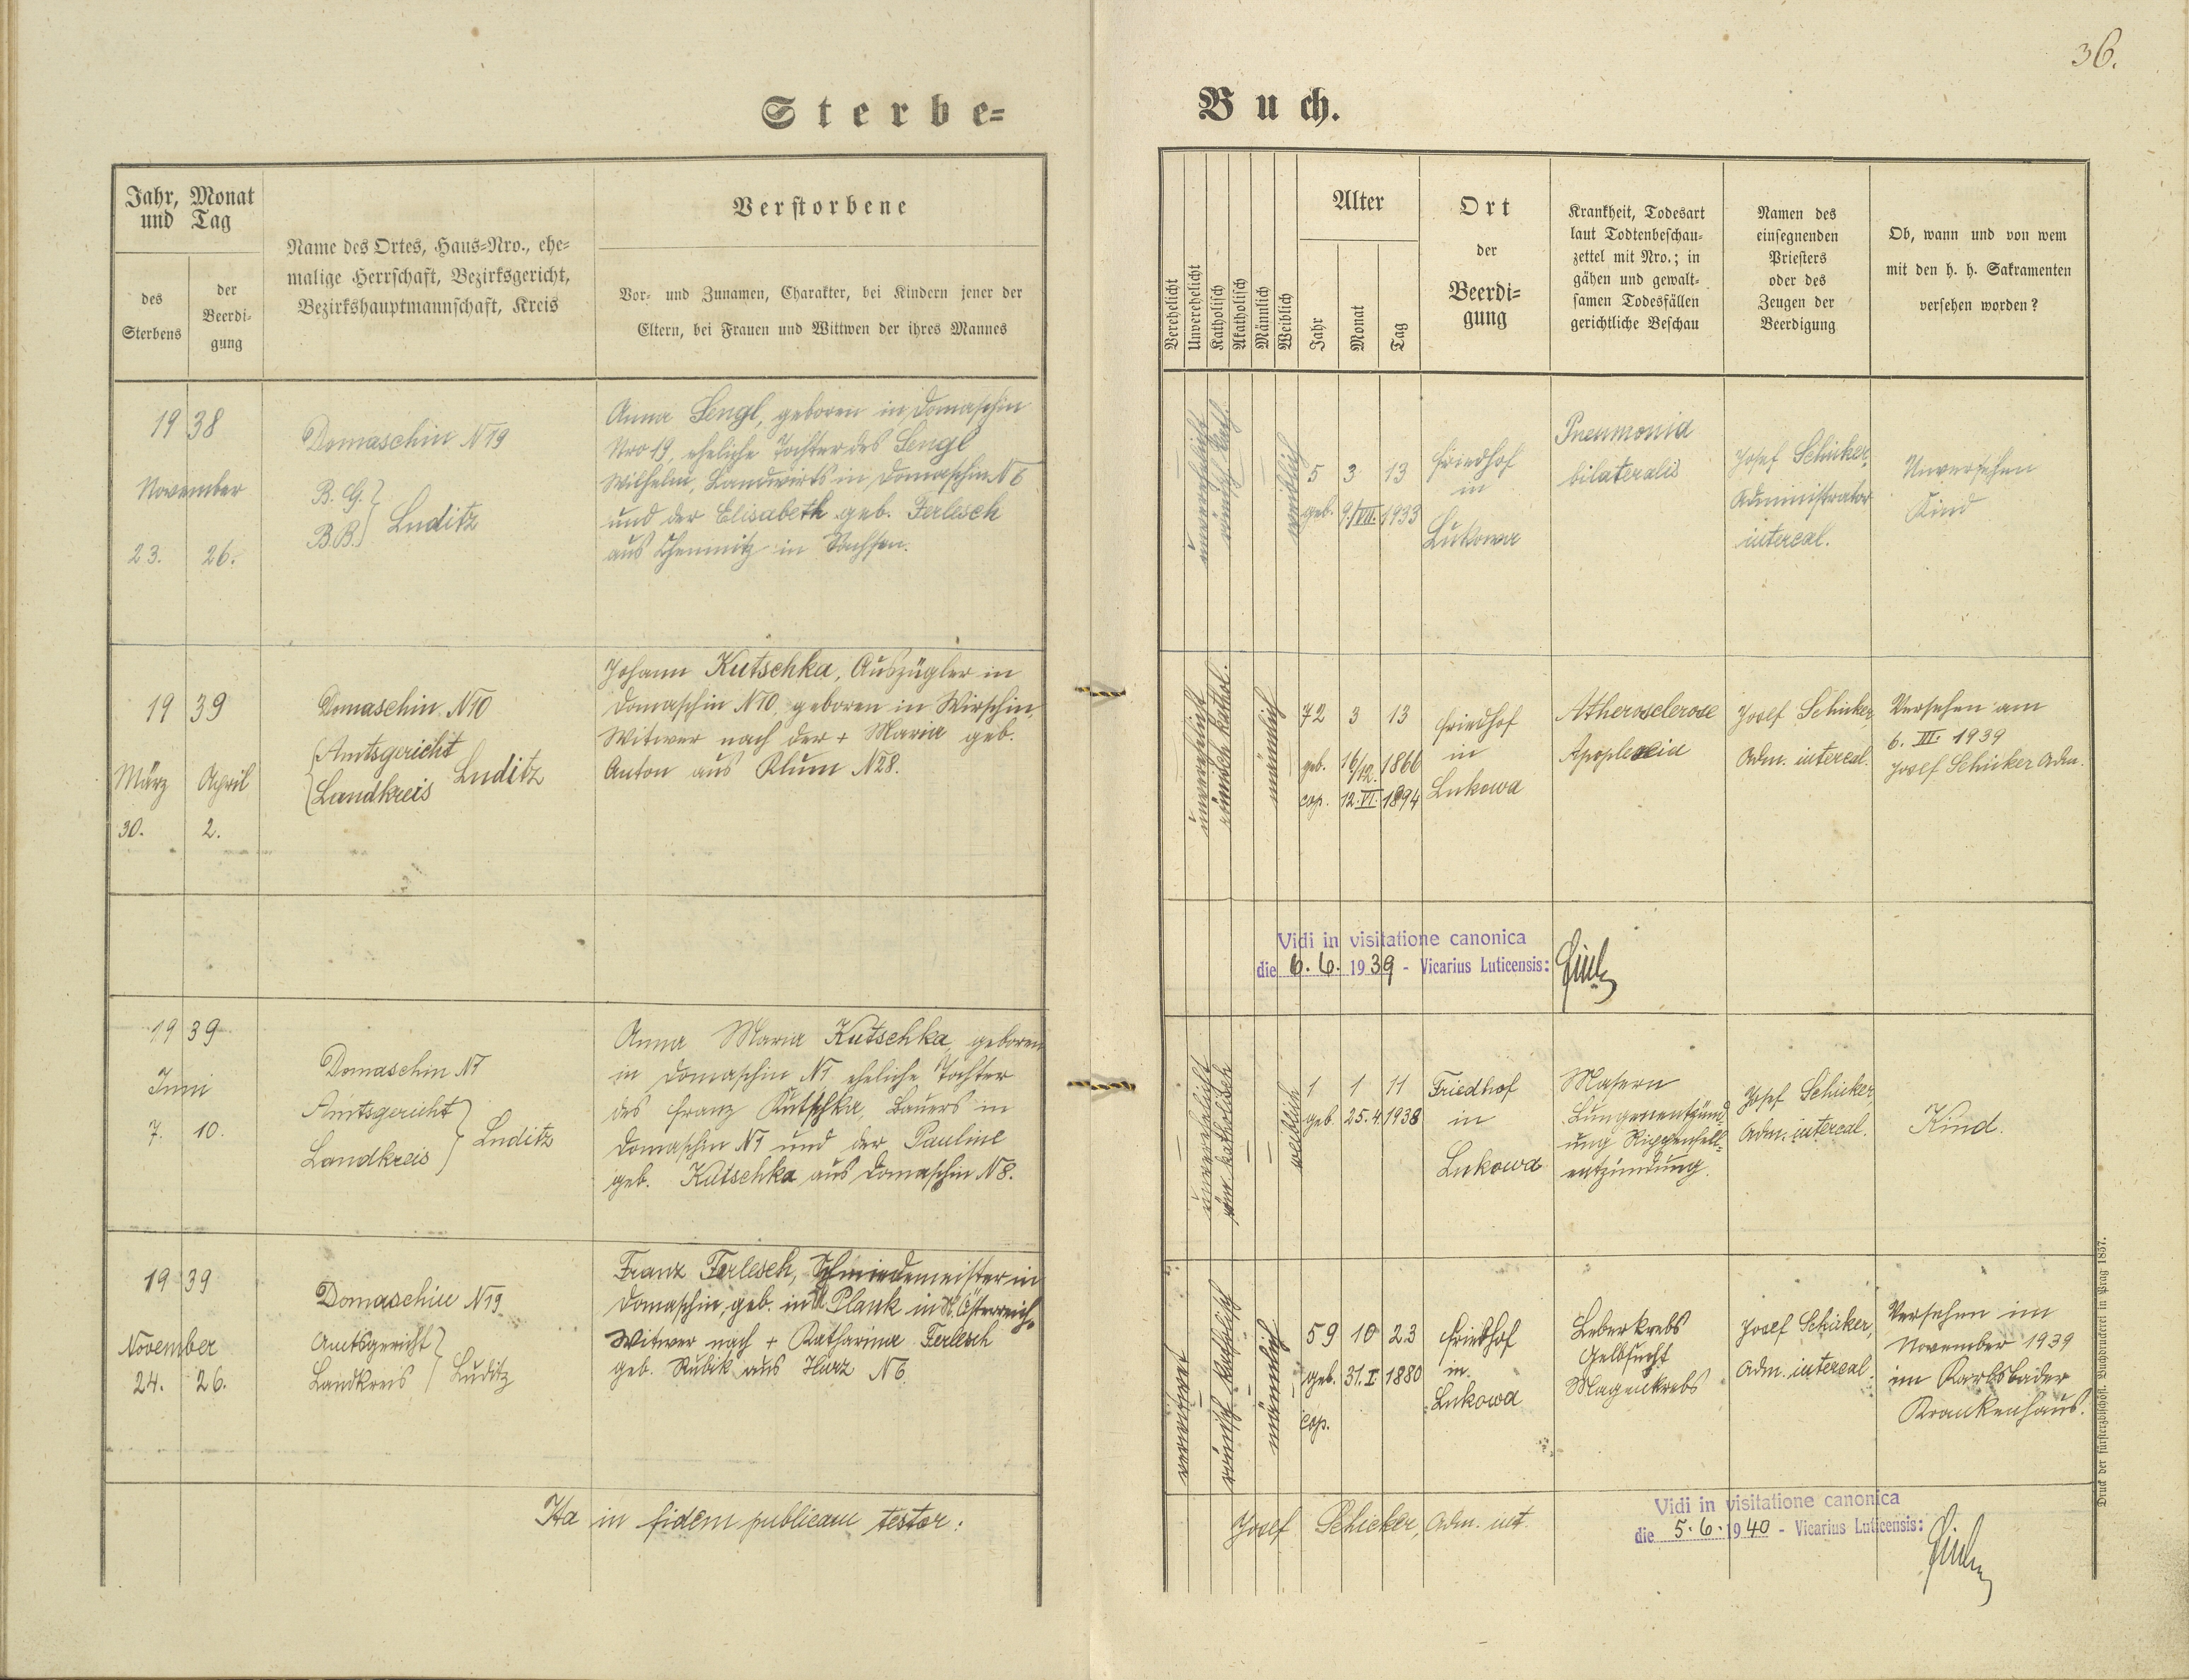 36.
Sterbe=
Buch.
Jahr, Monat
und Tag
des
Sterbens
der
Beerdi-
gung
Name des Ortes, Haus=Nro., ehe=
malige Herrschaft, Bezirksgericht,
Bezirkshauptmannschaft, Kreis
Verstorbene
Vor- und Zunamen, Charakter, bei Kindern jener der
Eltern, bei Frauen und Wittwen der ihres Mannes
Verehelicht
Unverehelicht
Katholisch
Akatholisch
Männlich
Weiblich
Alter
Jahr
Monat
Tag
Ort
der
Beerdi=
gung
Krankheit, Todesart
laut Todtenbeschau=
zettel mit Nro.; in
gähen und gewalt=
samen Todesfällen
gerichtliche Beschau
Namen des
einsegnenden
Priesters
oder des
Zeugen der
Beerdigung
Ob, wann und von wem
mit den h. h. Sakramenten
versehen worden?
1938
November
23. 26.
Domaschin N19
B. G.
B.B. } Luditz
Anna Lengl, geboren in Domaschin
Nro 19, eheliche Tochter des Lengl
Wilhelm, Landwirts in Domaschin N6
und der Elisabeth geb. Ferlesch
aus Chemnitz in Sachsen.
unverehelicht
römisch kath.
weiblich
5 3 13
geb. 9./VII. 1933
Friedhof
in
Lukowa
Pneumonia
bilateralis
Josef Schicker,
Administrator
intercal.
Unversehen
Kind
1939
März April
30. 2.
Domaschin N10
{Amtsgericht
Landkreis Luditz
Johann Kutschka, Auszügler in
Domaschin N10, geboren in Wirschin,
Witwer nach der + Maria geb.
Anton aus Klum N28.
unverehelicht
römisch kathol.
männlich
72 3 13
geb. 16/12. 1866
cop. 12.VI. 1894
Friedhof
in
Lukowa
Atherosclerose
Apoplexia
Josef Schicker
Adm. intercal.
Versehen am
6. III. 1939
Josef Schicker Adm.
Vidi in visitatione canonica
die 6. 6. 1939 - Vicarius Luticensis:
1939
Juni
7. 10.
Domaschin N1
Amtsgericht
Landkreis } Luditz
Anna Maria Kutschka, geboren
in Domaschin N1 eheliche Tochter
des Franz Kutschka, Bauers in
Domaschin N1 und der Pauline
geb. Kutschka aus Domaschin N8.
unverehelicht
röm. katholisch
weiblich
1 1 11
geb. 25.4. 1938
Friedhof
in
Lukowa
Masern
Lungenentzünd
ung Rippenfell=
entzündung.
Josef Schicker,
Adm. intercal.
Kind.
1939
November
24. 26.
Domaschin N19
Amtsgericht
Landkreis } Luditz
Franz Ferlesch, Schmiedemeister in
Domaschin, geb. in Plank in N. Österreich,
Witwer nach + Katharina Ferlesch
geb. Kubik aus Harz N6.
verwitwet
römisch katholisch
männlich
59 10 23
geb. 31. I 1880
cop.
Friedhof
in
Lukowa
Leberkrebs
Gelbsucht
Magenkrebs
Josef Schicker,
Adm. intercal.
Versehen im
November 1939
im Karlsbader
Krankenhaus.
Ita in fidem publicam testor:
Josef Schicker, Adm. int.
Vidi in visitatione canonica
die 5. 6. 1940 - Vicarius Luticensis:
Druck der fürsterzbischöfl. Buchdruckerei in Prag 1857.